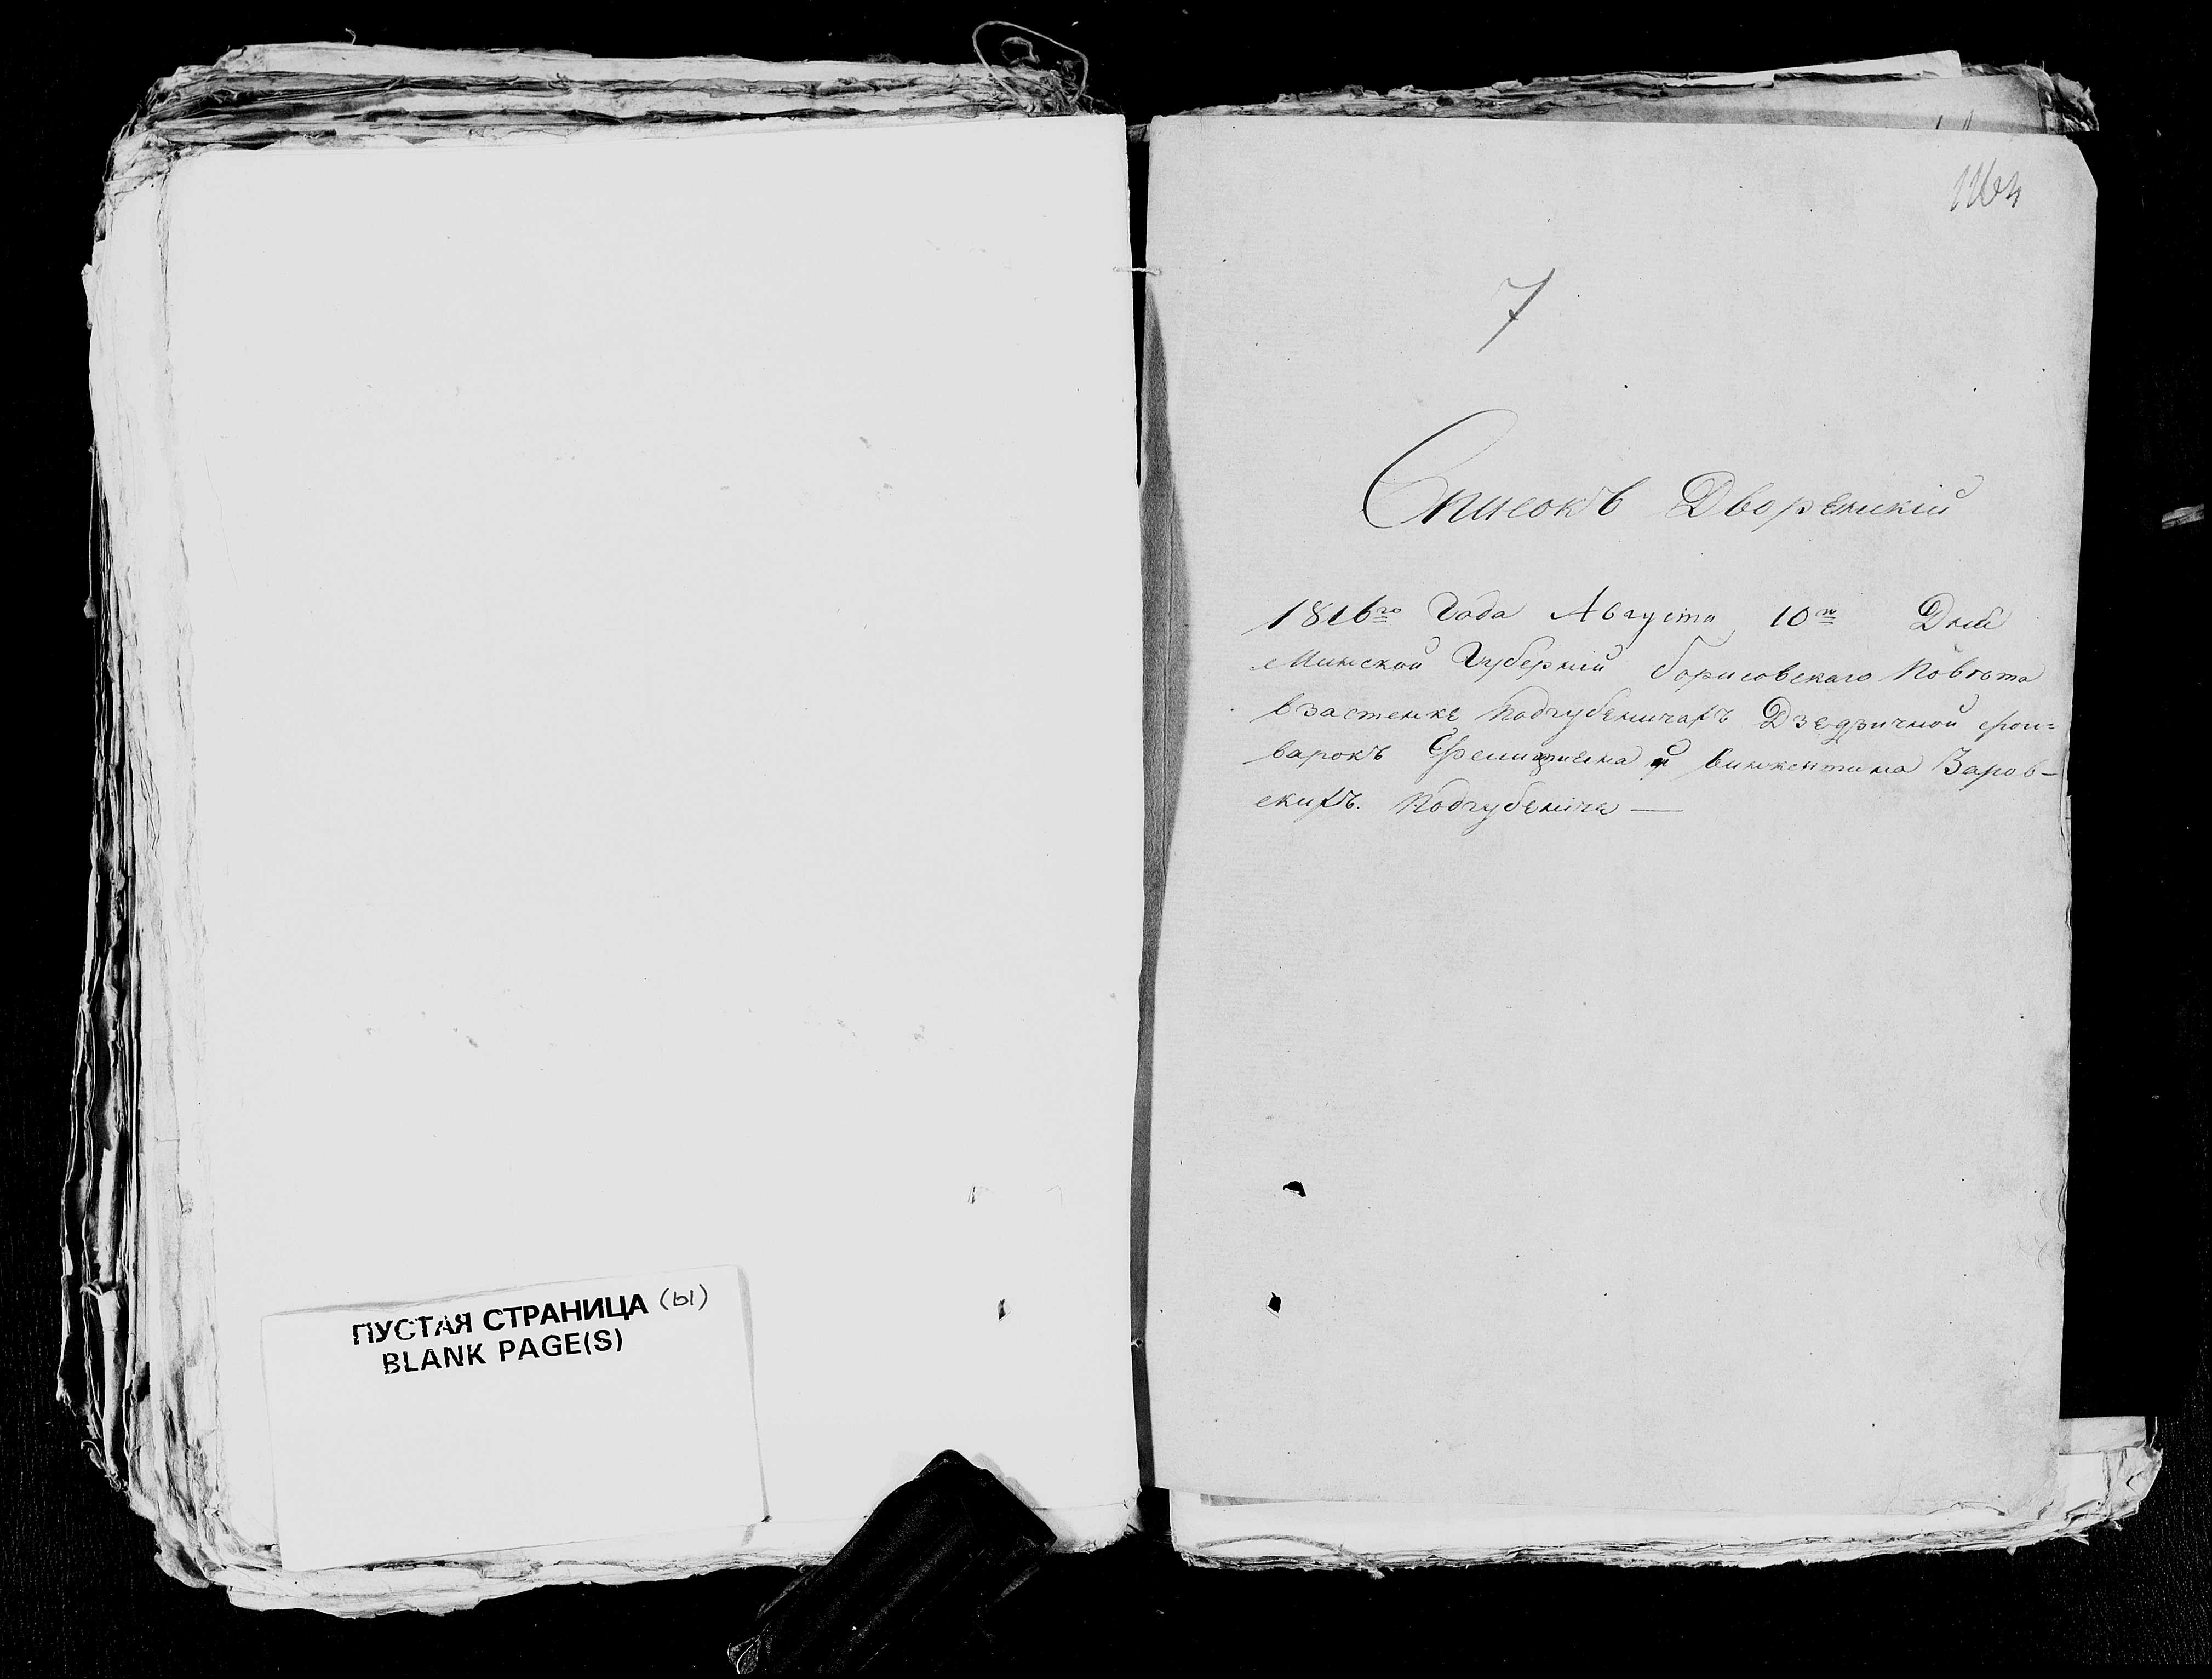 ПУСТАЯ СТРАНИЦА (ы)
BLANK PAGE(S)
1164
7
Списокъ Дворенскій
1816го Года Августа 10го Дня
Минской Губерніи Борисовскаго Повѣта
в застенке Подгубеничахъ Дзедзичной фол=
варокъ Фелициана и Винкентина Заров-
скихъ. Подгубеничи —